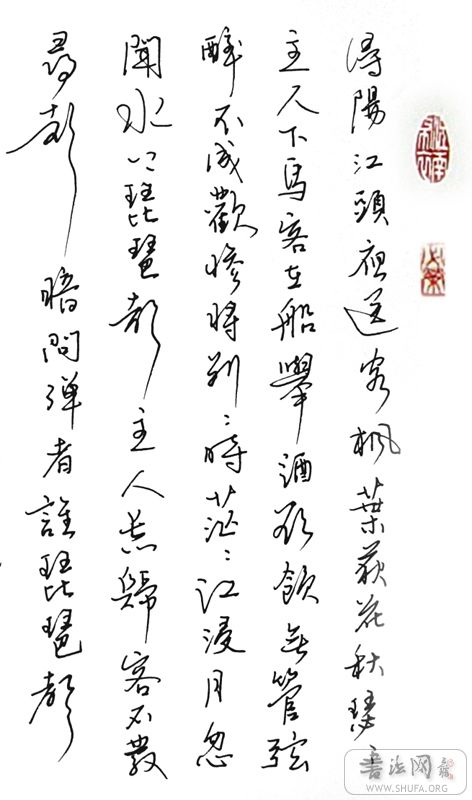 潯陽江頭夜送客楓葉荻花秋瑟々
主人下馬客在船舉酒欲飲無管弦
醉不成歡慘將別々時茫々江浸月忽
聞水上琵琶聲主人忘歸客不發
尋聲暗問彈者誰琵琶聲
書法网
WWW.SHUFA.COM